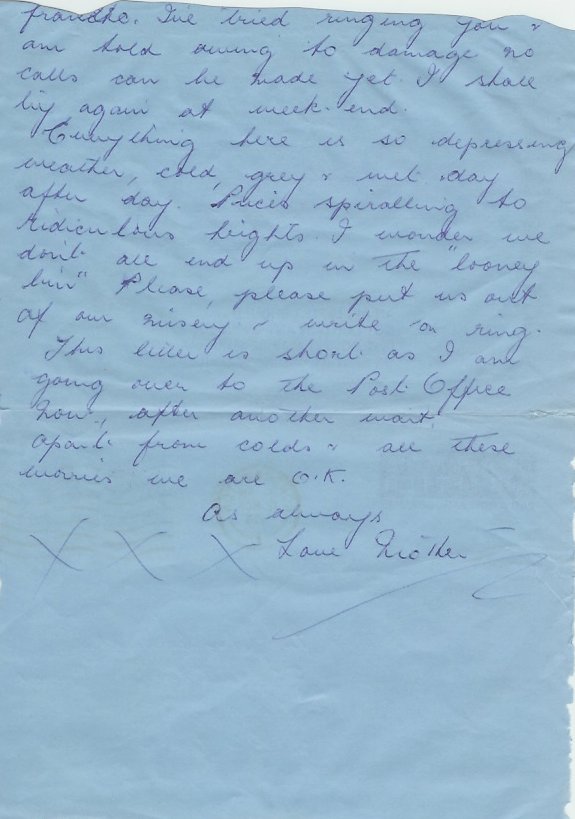 frantic. I've tried ringing you &
am told owing to damage no
calls can be made yet. I shall
try again at week-end.
Everything here is so depressing
weather, cold, grey & wet day
after day. Prices spiralling to
ridiculous heights. I wonder we
don't all end up in the "looney
bin" Please, please put us out
of our misery & write or ring.
This letter is short as I am
going over to the Post Office
now, after another wait.
Apart from colds & all these
worries we are O.K.
As always
X X X Love Mother